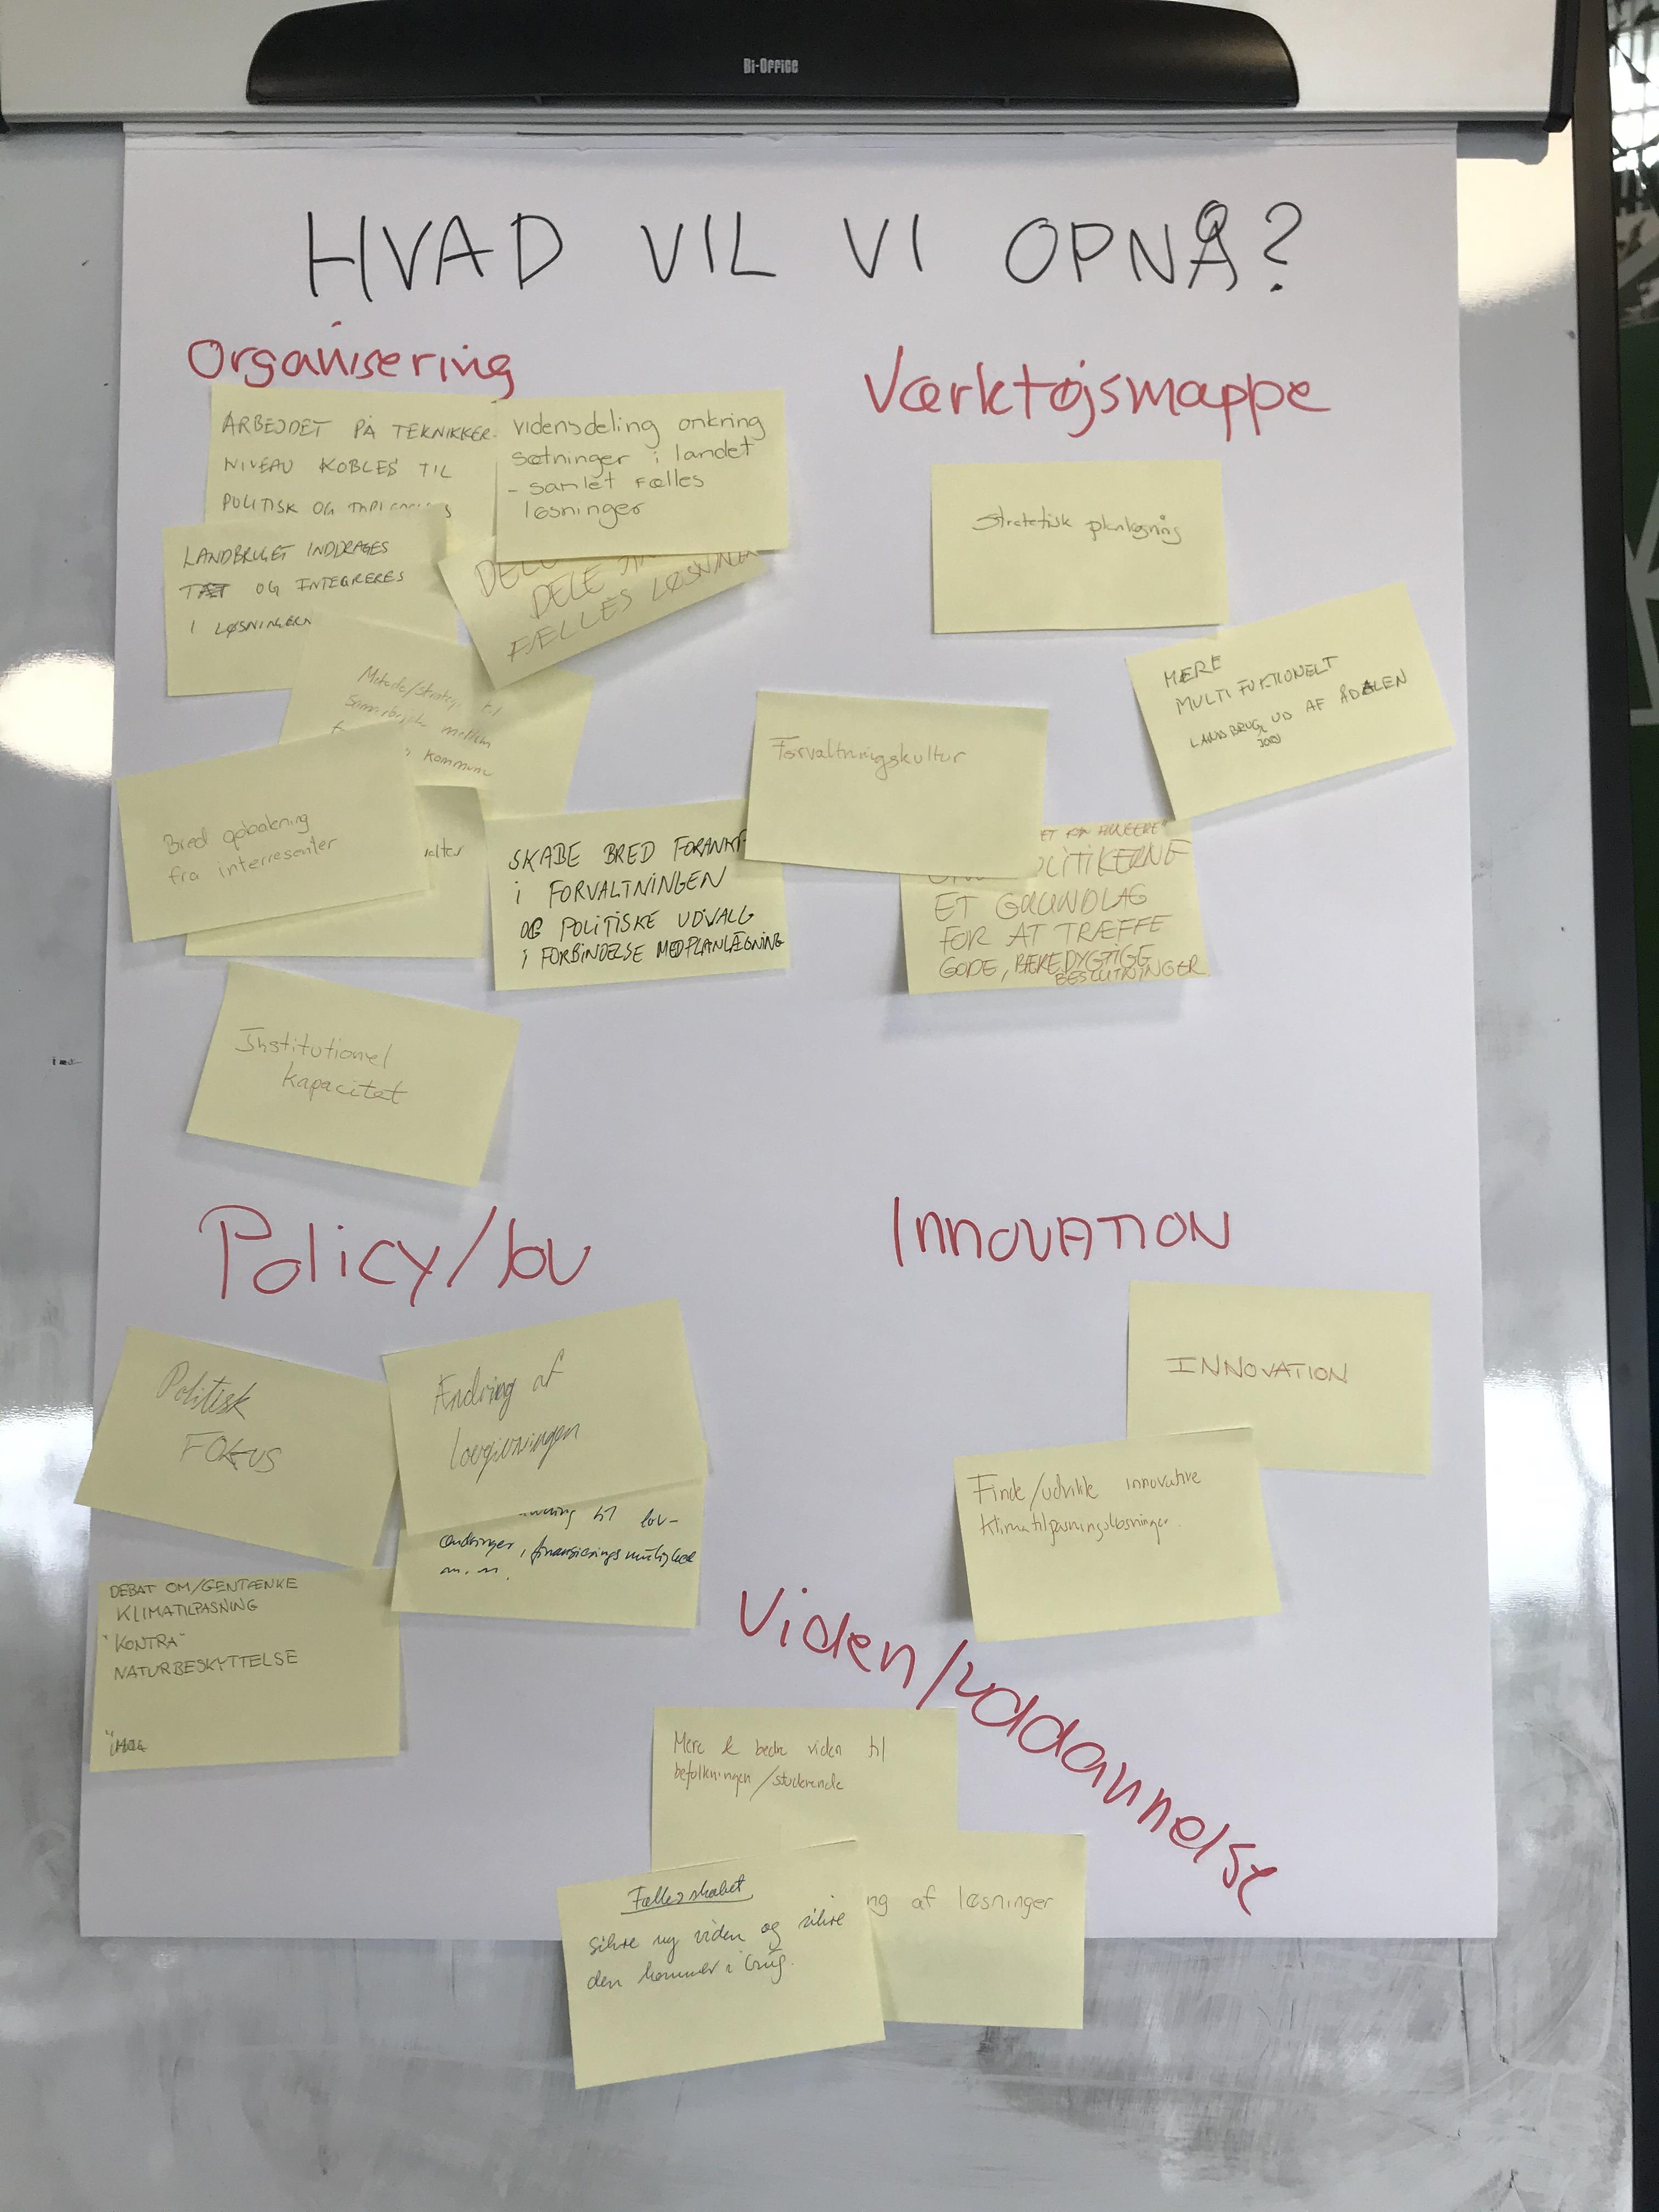 Bi-Office
HVAD VIL VI OPNÅ?
Organisering
ARBEJDET PÅ TEKNIKKER-
NIVEAU KOBLES TIL
POLITISK OG
vidensdeling onkring
sætninger i landet
- samlet fælles
løsninger
LANDBRUGET INDDRAGES
TÆT OG INTEGRERES
I LØSNINGERN
DELE
FÆLLES LØSNINGER
Metode/strategi til
samarbejde mellem
kommune
Bred opbakning
fra interresenter
SKABE BRED FORANKR
i FORVALTNINGEN
OG POLITISKE UDVALG
i FORBINDELSE MED PLANLÆGNING
Institutionel
kapacitet
Værktøjsmappe
Stratetisk planlægning
MERE
MULTIFUKTIONELT
LANDBRUG UD AF ÅDALEN
JORD
Forvaltningskultur
POLITIKERNE
ET GRUNDLAG
FOR AT TRÆFFE
GODE, BÆREDYGTIGE
BESLUTNINGER
Policy/lov
Politisk
FOKUS
Ændring af
lovgivningen
til lov-
ændringer, finansieringsmulighed
m.m.
DEBAT OM/GENTÆNKE
KLIMATILPASNING
"KONTRA"
NATURBESKYTTELSE
INNOVATION
INNOVATION
Finde/udvikle innovative
klimatilpasningsløsninger.
Viden/uddannelse
Mere & bedre viden til
befolkningen/studerende
ng af løsninger
Fællesskabet
Sikre ny viden og sikre
den kommer i brug.